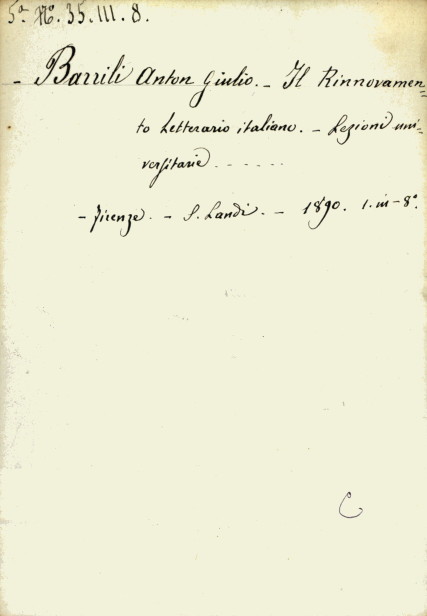 5ª Nº. 35. III. 8.
- Barrili Anton Giulio. - Il Rinnovamen=
to Letterario italiano. - Lezioni uni-
versitarie . - - - - -
- Firenze. - S. Landi. - 1890. 1. in-8º.
C